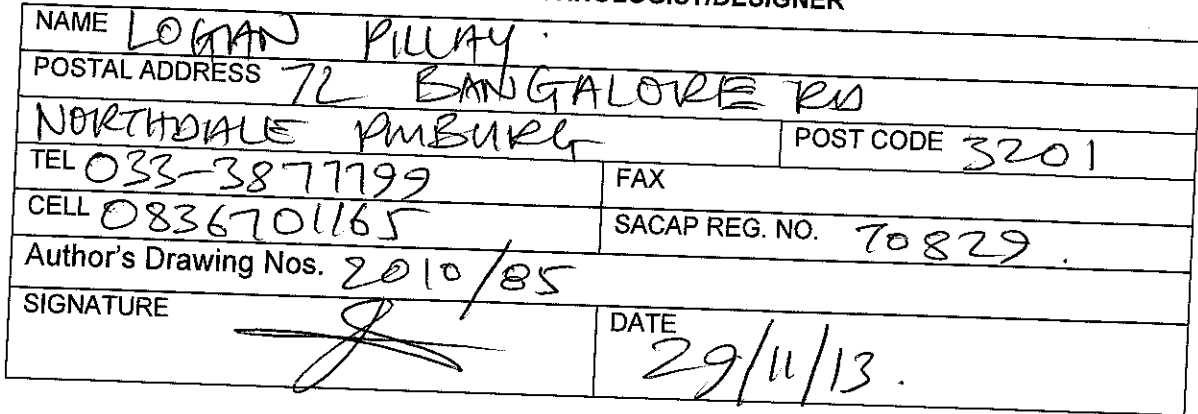 NAME LOGAN PILLAY.
POSTAL ADDRESS 72 BANGALORE RD
NORTHDALE PMBURG POST CODE 3201
TEL 033-3877799 FAX
CELL 0836701165 SACAP REG. NO. 70829.
Author's Drawing Nos. 2010/85
SIGNATURE DATE 29/11/13.